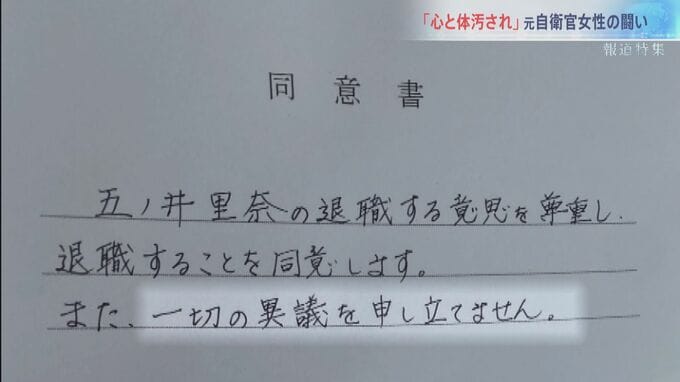 「心と体汚され」元自衛官女性の闘い
報道特集
同意書
五ノ井里奈の退職する意思を尊重し、
退職することを同意します。
また、一切の異議を申し立てません。